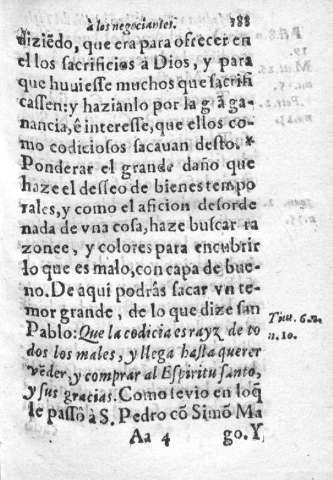 à los negociantes. 188
diziẽdo, que era para ofrecer en
ellos sacrificios à Dios, y para
que huuiesse muchos que sacrifi
cassen: y hazianlo por la grã ga-
nancia, ê interesse, que ellos co-
mo codiciosos sacauan desto. *
Ponderar el grande daño que
haze el desseo de bienes tempo
rales, y como el aficion desorde
nada de vna cosa, haze buscar ra
zones, y colores para encubrir
lo que es malo, con capa de bue-
no. De aqui podràs sacar vn te-
mor grande, de lo que dize san
Pablo: Que la codicia es rayz de to
dos los males, y llega hasta querer
vẽder, y comprar al Espiritu santo,
y sus gracias. Como se vio en loq̃
le passô à S. Pedro cõ Simõ Ma
Aa 4 go. Y
n. 10.